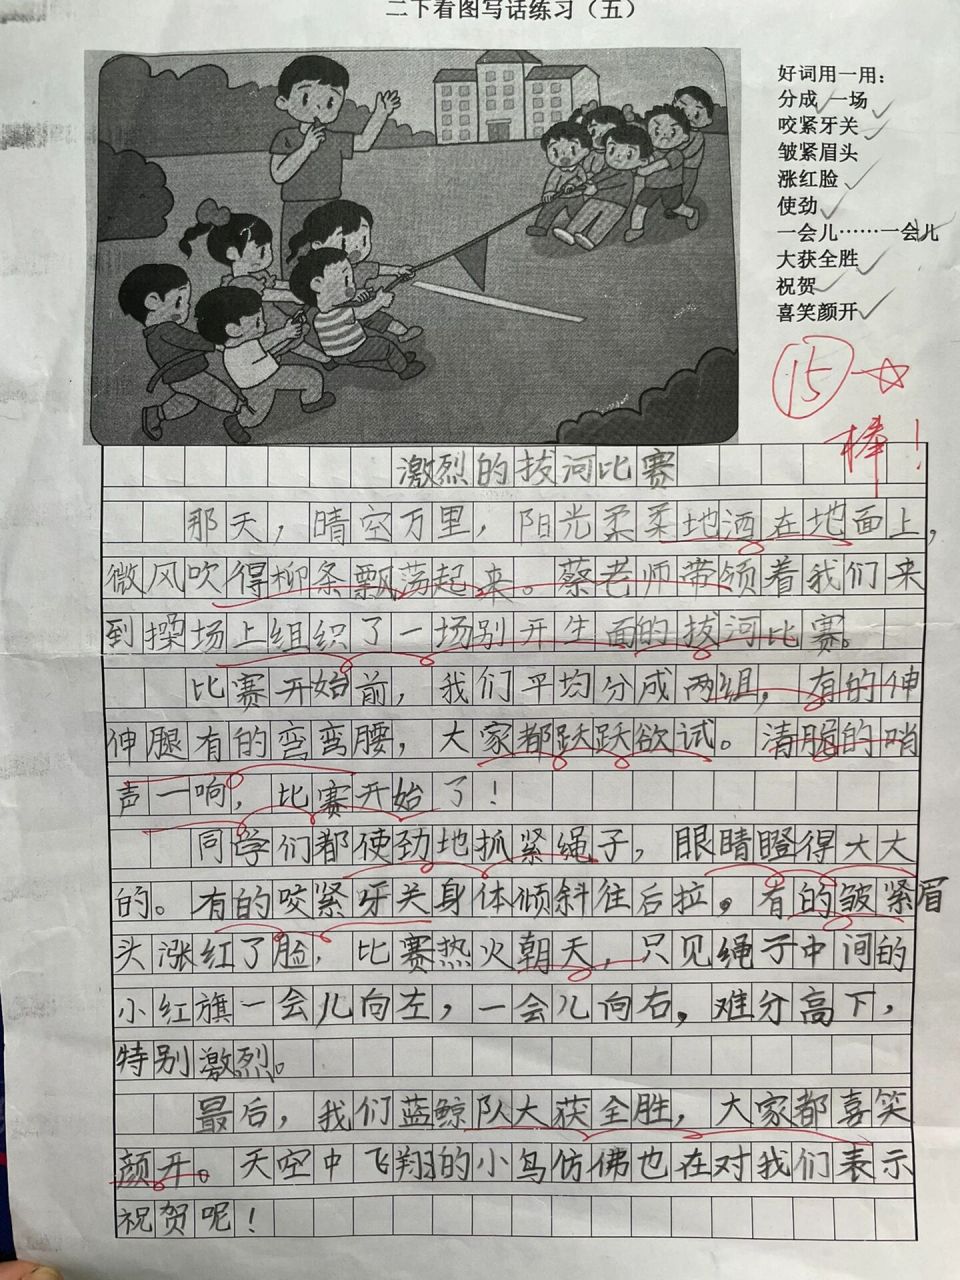 二下看图写话练习（五）
好词用一用：
分成 一场
咬紧牙关
皱紧眉头
涨红脸
使劲
一会儿……一会儿
大获全胜
祝贺
喜笑颜开
15
棒！
激烈的拔河比赛
那天，晴空万里，阳光柔柔地洒在地面上，
微风吹得柳条飘荡起来。蔡老师带领着我们来
到操场上组织了一场别开生面的拔河比赛。
比赛开始前，我们平均分成两组，有的伸
伸腿有的弯弯腰，大家都跃跃欲试。清脆的哨
声一响，比赛开始了！
同学们都使劲地抓紧绳子，眼睛瞪得大大
的。有的咬紧牙关身体倾斜往后拉，有的皱紧眉
头涨红了脸，比赛热火朝天，只见绳子中间的
小红旗一会儿向左，一会儿向右，难分高下，
特别激烈。
最后，我们蓝鲸队大获全胜，大家都喜笑
颜开。天空中飞翔的小鸟仿佛也在对我们表示
祝贺呢！